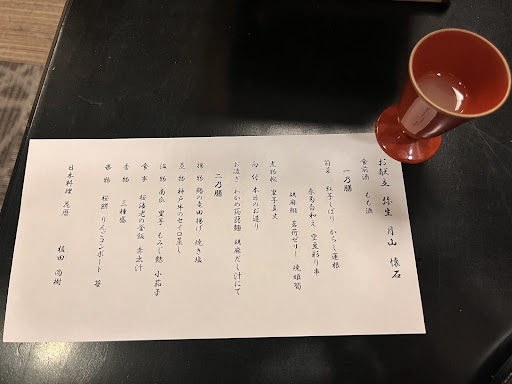 お献立 弥生 月山 懐石
食前酒 もも酒
一乃膳
前菜 紅子しばり からし蓮根
春菊白和え 空豆彩り串
胡麻麺 茗荷ゼリー 焼姫筍
煮物椀 里芋真丈
向付 本日のお造り
お凌ぎ わかめ蒟蒻麺 胡麻だし汁にて
二乃膳
揚物 鶏の麦田揚げ 焼き塩
蒸物 神戸牛のセイロ蒸し
温物 南瓜 里芋 もみじ麩 小茄子
食事 桜海老の釜飯 赤出汁
香物 三種盛
果物 桜餅 りんごコンポート 苺
日本料理 花暦 植田 尚樹